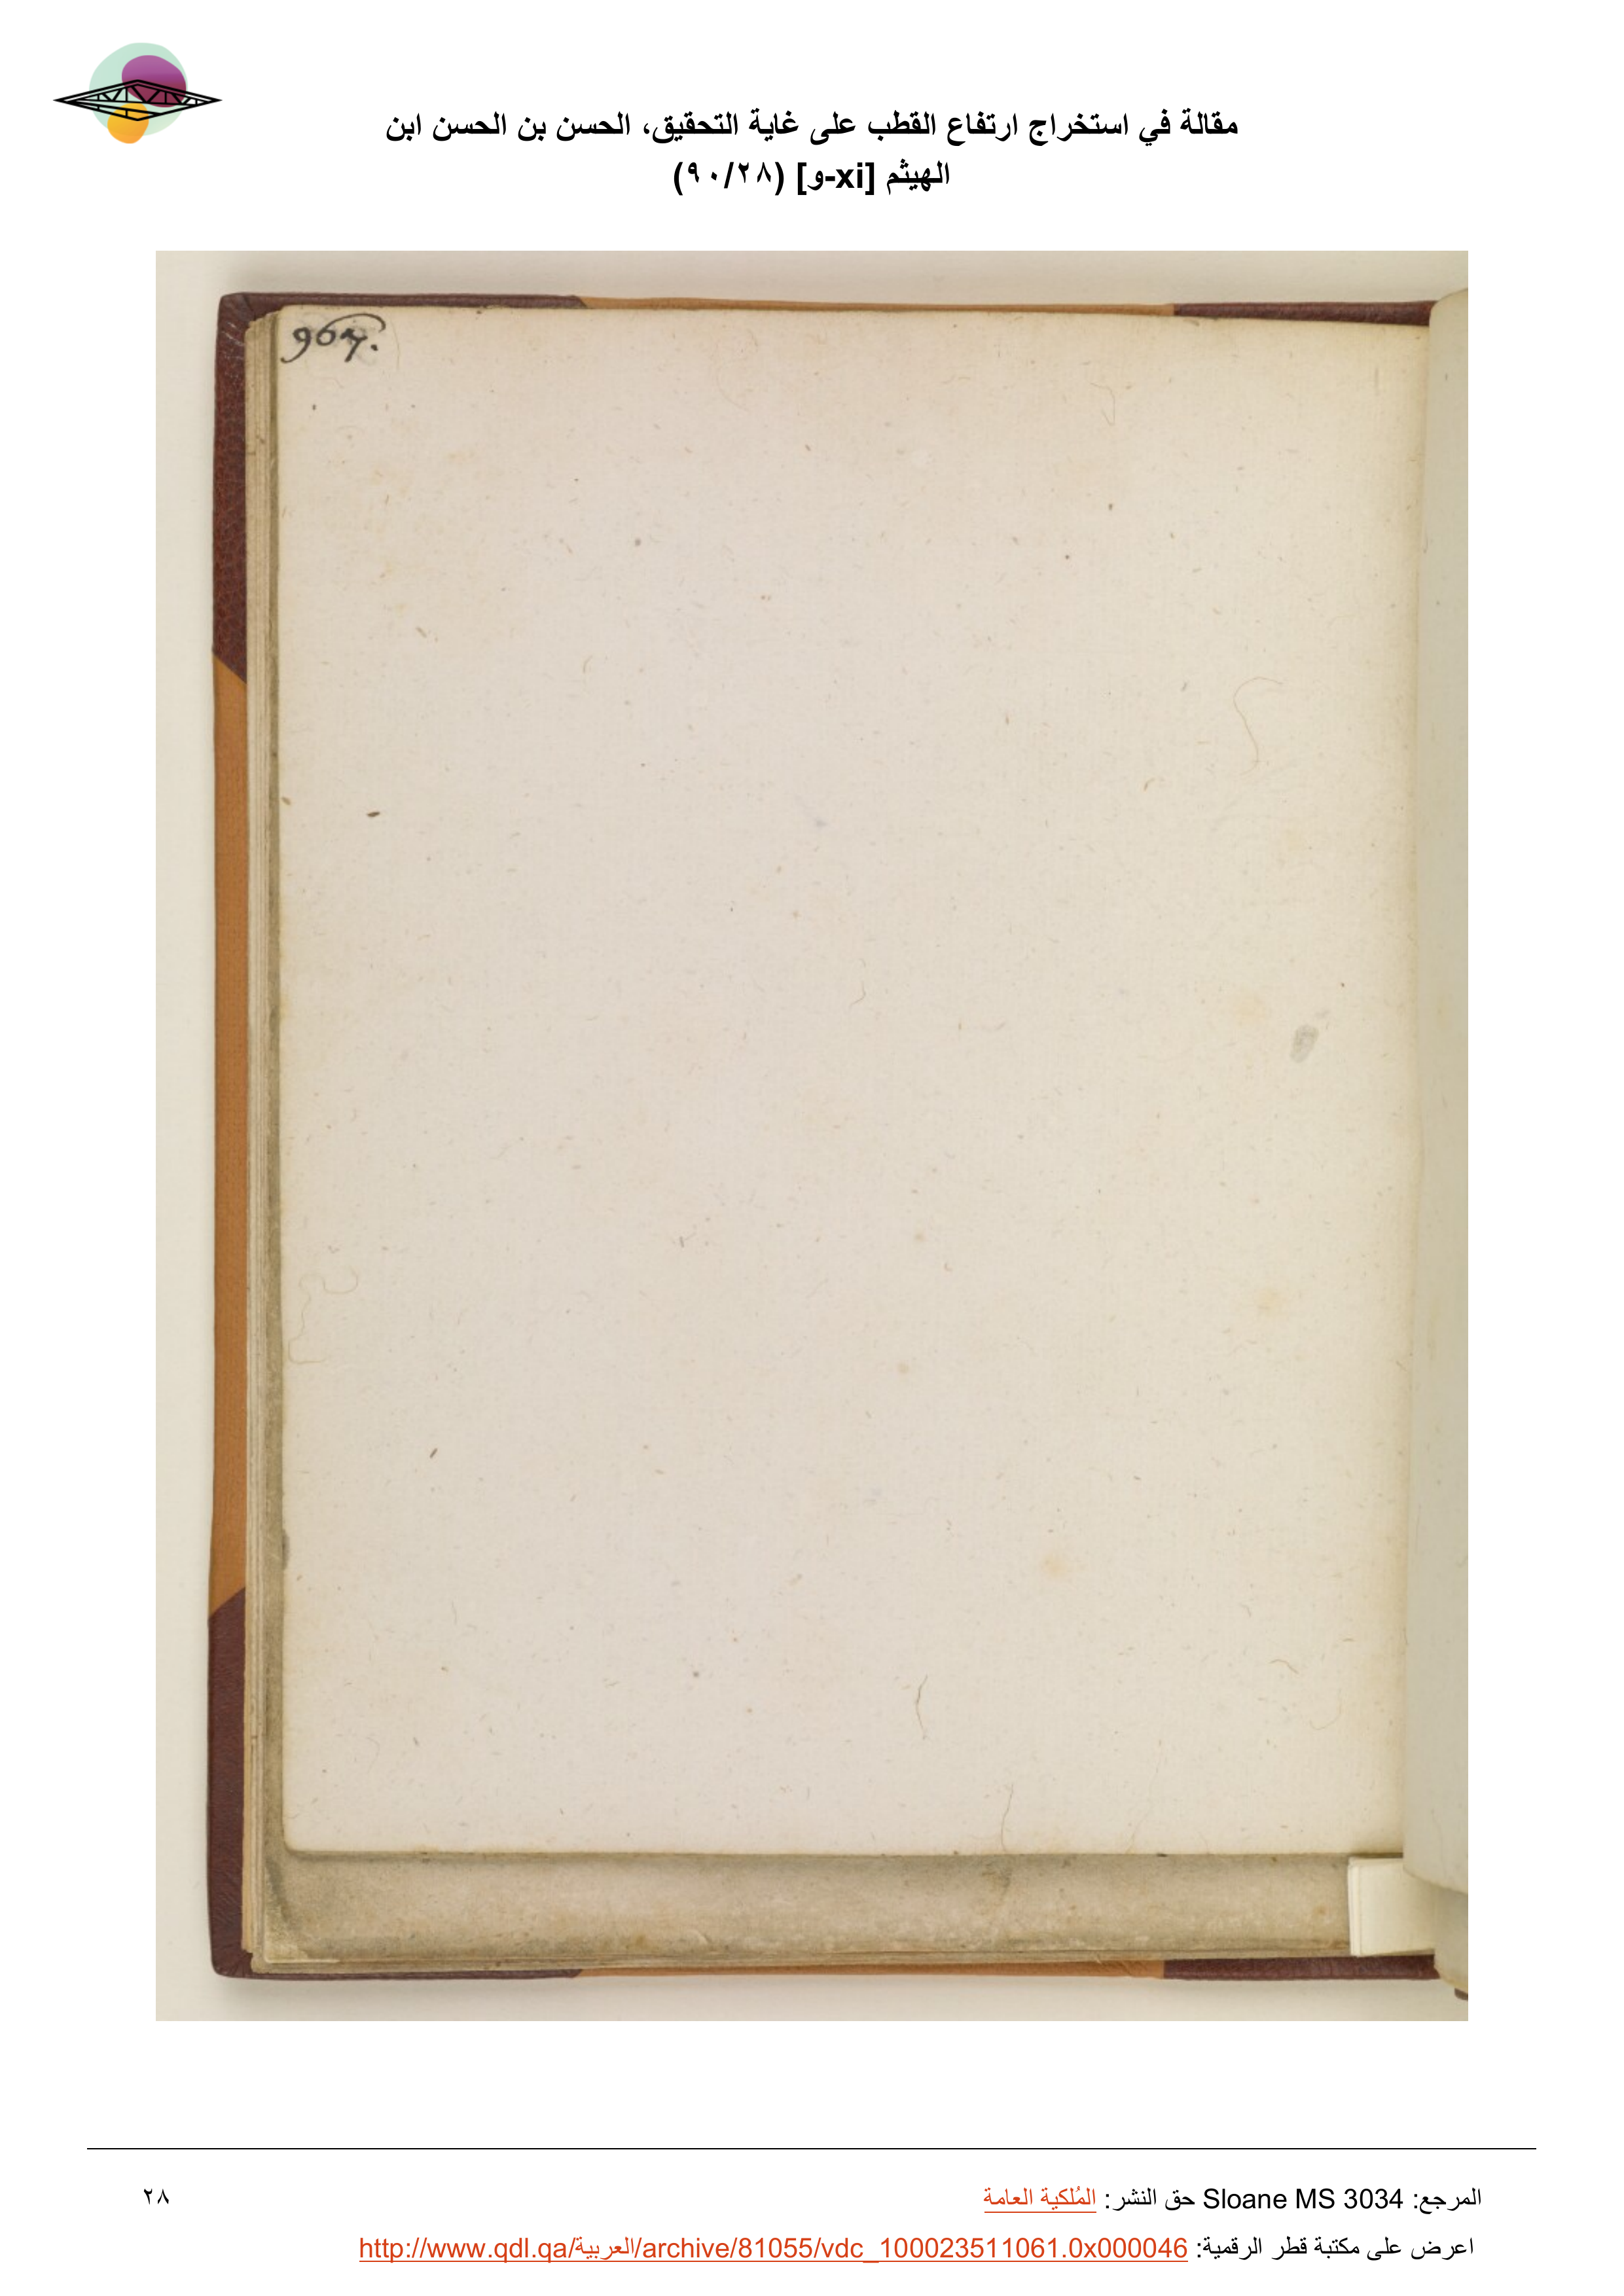 مقالة في استخراج ارتفاع القطب على غاية التحقيق، الحسن بن الحسن ابن
الهيثم [xi-و] (٩٠/٢٨)
967.
المرجع: Sloane MS 3034 حق النشر: المُلكية العامة
٢٨
اعرض على مكتبة قطر الرقمية: http://www.qdl.qa/العربية/archive/81055/vdc_100023511061.0x000046